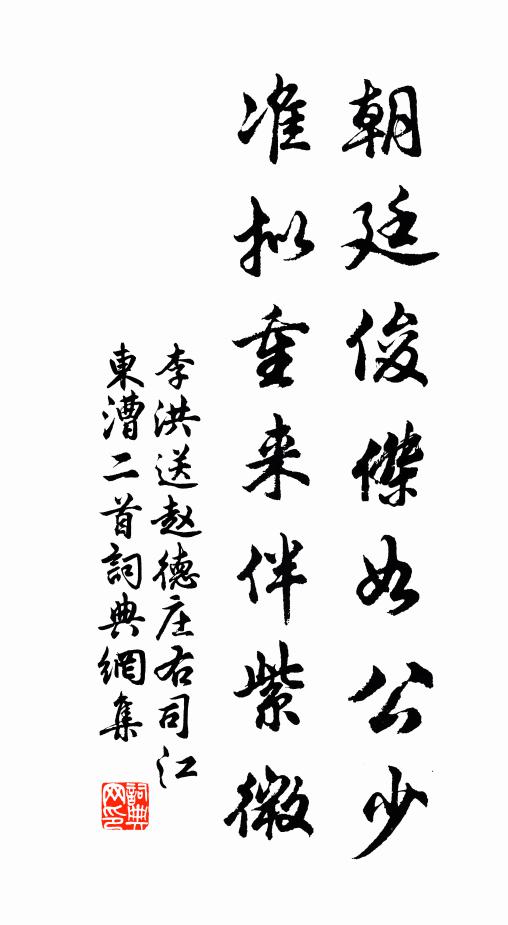 朝廷俊傑如公少
准拟重来伴紫微
李洪送赵德庄右司江
東漕二首詞典網集
詞典网印